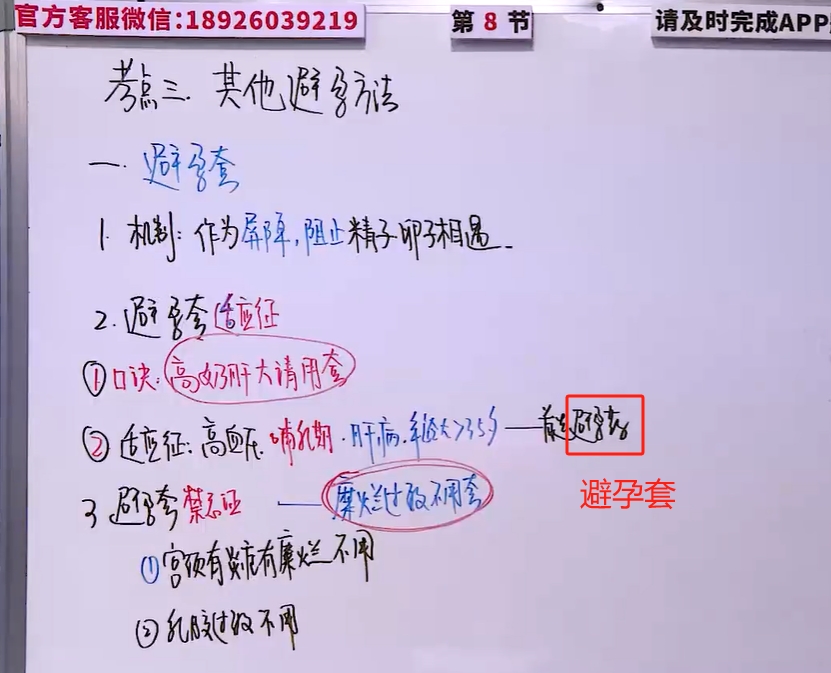 官方客服微信:18926039219
第 8 节
请及时完成APP
考点三.其他避孕方法
一.避孕套
1.机制:作为屏障,阻止精子卵子相遇.
2.避孕套适应征
①口诀:高奶肝大请用套
②适应征:高血压.哺乳期.肝病.年龄大>35岁——首选避孕套
避孕套
3 避孕套禁忌证——糜烂过敏不用套
①宫颈有炎症有糜烂不用
②乳胶过敏不用